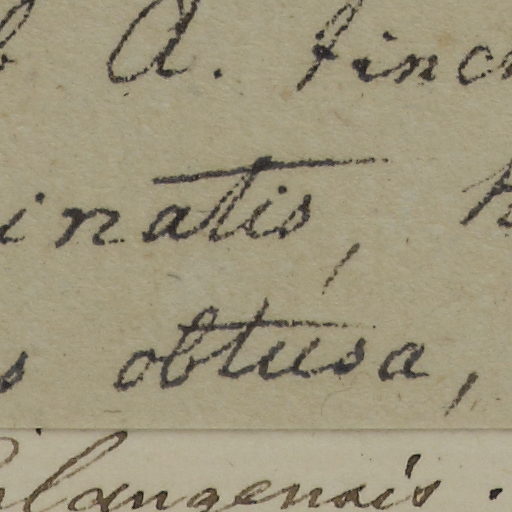 A. tinc
inatis,
s obtusa,
langensis.